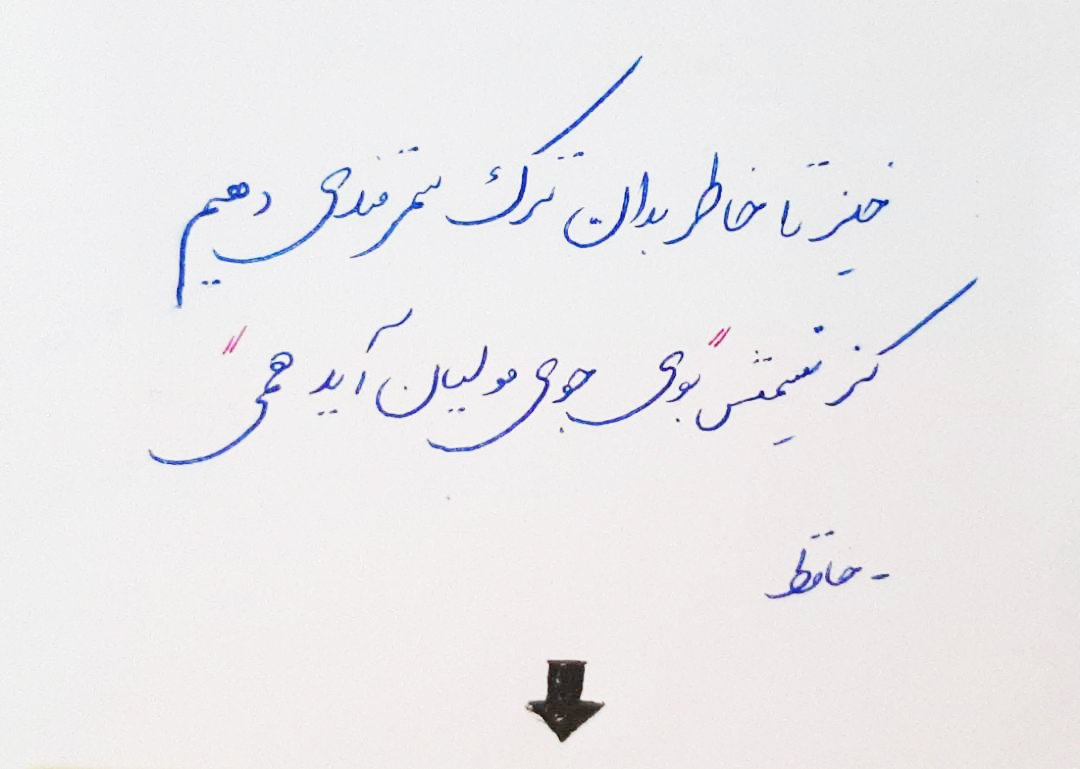 خیز تا خاطر بدان ترک سمرقندی دهیم
کز نسیمش "بوی جوی مولیان آید همی"
- حافظ